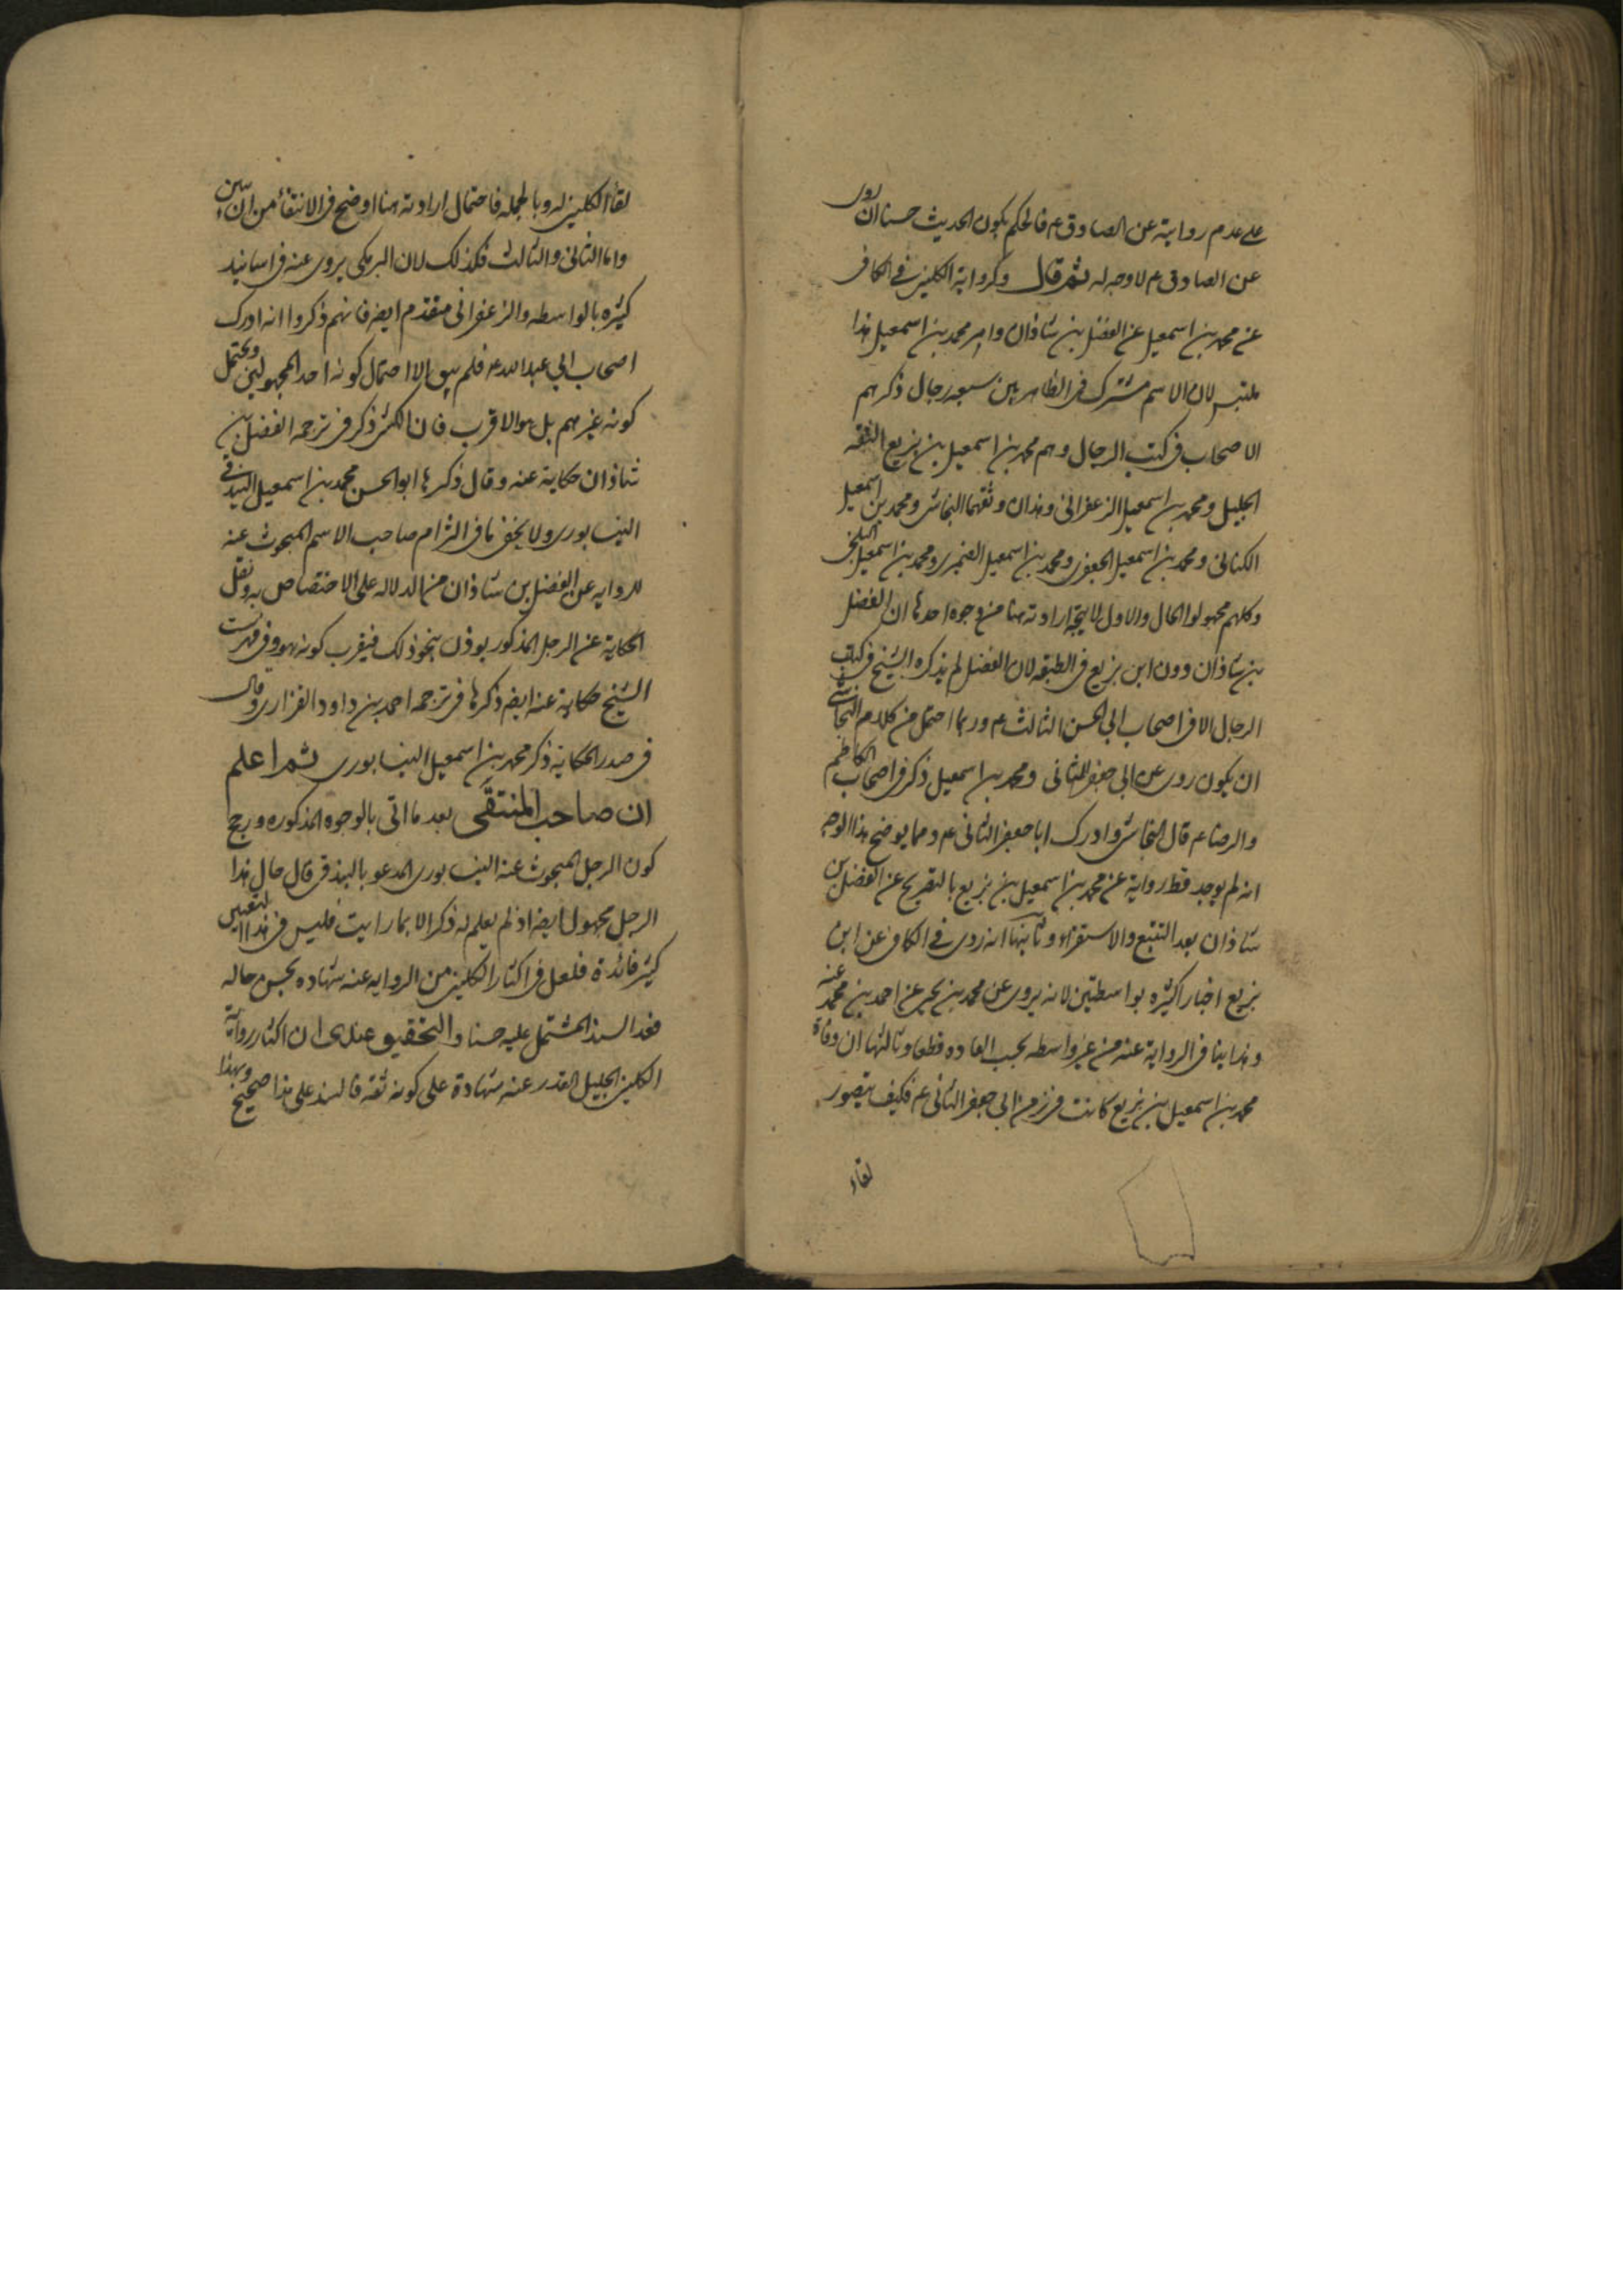 على عدم روايته عن الصادق ع فالحكم بكون الحديث حسنا ان روى
عن الصادق ع لا وجه له ثم قال وكرواية الكليني في الكافي
عن محمد بن اسمعيل عن الفضل بن شاذان وامر محمد بن اسمعيل هذا
ملتبس لان الاسم مشترك في الظاهر بين سبعة رجال ذكرهم
الاصحاب في كتب الرجال وهم محمد بن اسمعيل بن بزيع الثقة
الجليل ومحمد بن اسمعيل الزعفراني وهذان وثقهما النجاشي ومحمد بن اسمعيل
الكناني ومحمد بن اسمعيل الجعفري ومحمد بن اسمعيل الصميري ومحمد بن اسمعيل البلخي
وكلهم مجهولوا الحال والاول لا يتجه ارادته هنا من وجوه احدها ان الفضل
بن شاذان دون ابن بزيع في الطبقه لان الفضل لم يذكره الشيخ في كتاب
الرجال الا في اصحاب ابي الحسن الثالث ع وربما احتمل من كلام النجاشي
ان يكون روى عن ابي جعفر الثاني ومحمد بن اسمعيل ذكر في اصحاب الكاظم
والرضا ع قال النجاشي وادرك ابا جعفر الثاني ع ومما يوضح هذا الوجه
انه لم يوجد قط رواية عن محمد بن اسمعيل بن بزيع بالتصريح عن الفضل بن
شاذان بعد التتبع والاستقراء وثانيها انه روى في الكافي عن ابن
بزيع اخبارا كثيره بواسطتين لانه يروى عن محمد بن يحيى عن احمد بن محمد عنه
وهذا ينافي الرواية عنه من غير واسطه بحسب العاده قطعا وثالثها ان وفاة
محمد بن اسمعيل بن بزيع كانت في زمن ابي جعفر الثاني ع فكيف يتصور
لقاء
لقاء الكليني له وبالجمله فاحتمال ارادته هنا اوضح في الانتفاء من ان يبين
واما الثاني والثالث فكذلك لان البرمكي يروى عنه في اسانيد
كثيره بالواسطه والزعفراني متقدم ايضا فانهم ذكروا انه ادرك
اصحاب ابي عبد الله ع فلم يبق الا احتمال كونه احد المجهولين ويحتمل
كونه غيرهم بل هو الاقرب فان الكشي ذكر في ترجمه الفضل بن
شاذان حكاية عنه وقال ذكرها ابو الحسن محمد بن اسمعيل البندقي
النيسابوري ولا يخفى ما في التزام صاحب الاسم المبحوث عنه
للروايه عن الفضل بن شاذان من الدلاله على الاختصاص به ونقل
الحكاية عن الرجل المذكور يوذن بنحو ذلك فيقرب كونه هو وفي فهرست
الشيخ حكاية عنه ايضا ذكرها في ترجمه احمد بن داود الفزاري وقال
في صدر الحكاية ذكر محمد بن اسمعيل النيسابوري ثم اعلم
ان صاحب المنتقى بعد ما اتى بالوجوه المذكوره ورجح
كون الرجل المبحوث عنه النيسابوري المدعو بالبندقي قال حال هذا
الرجل مجهول ايضا اذ لم يعلم له ذكر الا بما رايت فليس في هذا التعيين
كثير فائدة فلعل في اكثار الكليني من الروايه عنه شهاده بحسن حاله
فعد السند المشتمل عليه حسنا والتحقيق عندى ان اكثار رواية
الكليني الجليل القدر عنه شهادة على كونه ثقه فالسند على هذا صحيح وبهذا